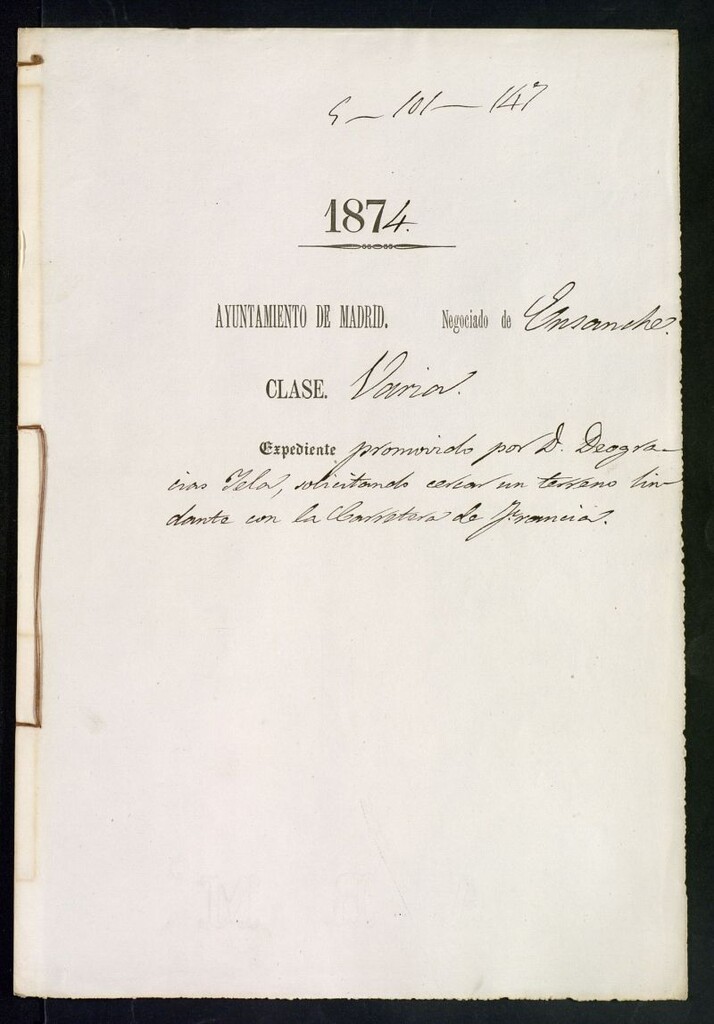 5-101-147
1874.
AYUNTAMIENTO DE MADRID. Negociado de Ensanche.
CLASE. Varia.
Expediente promovido por D. Deogra-
cias Tela, solicitando cercar un terreno lin-
dante con la Carretera de Francia.